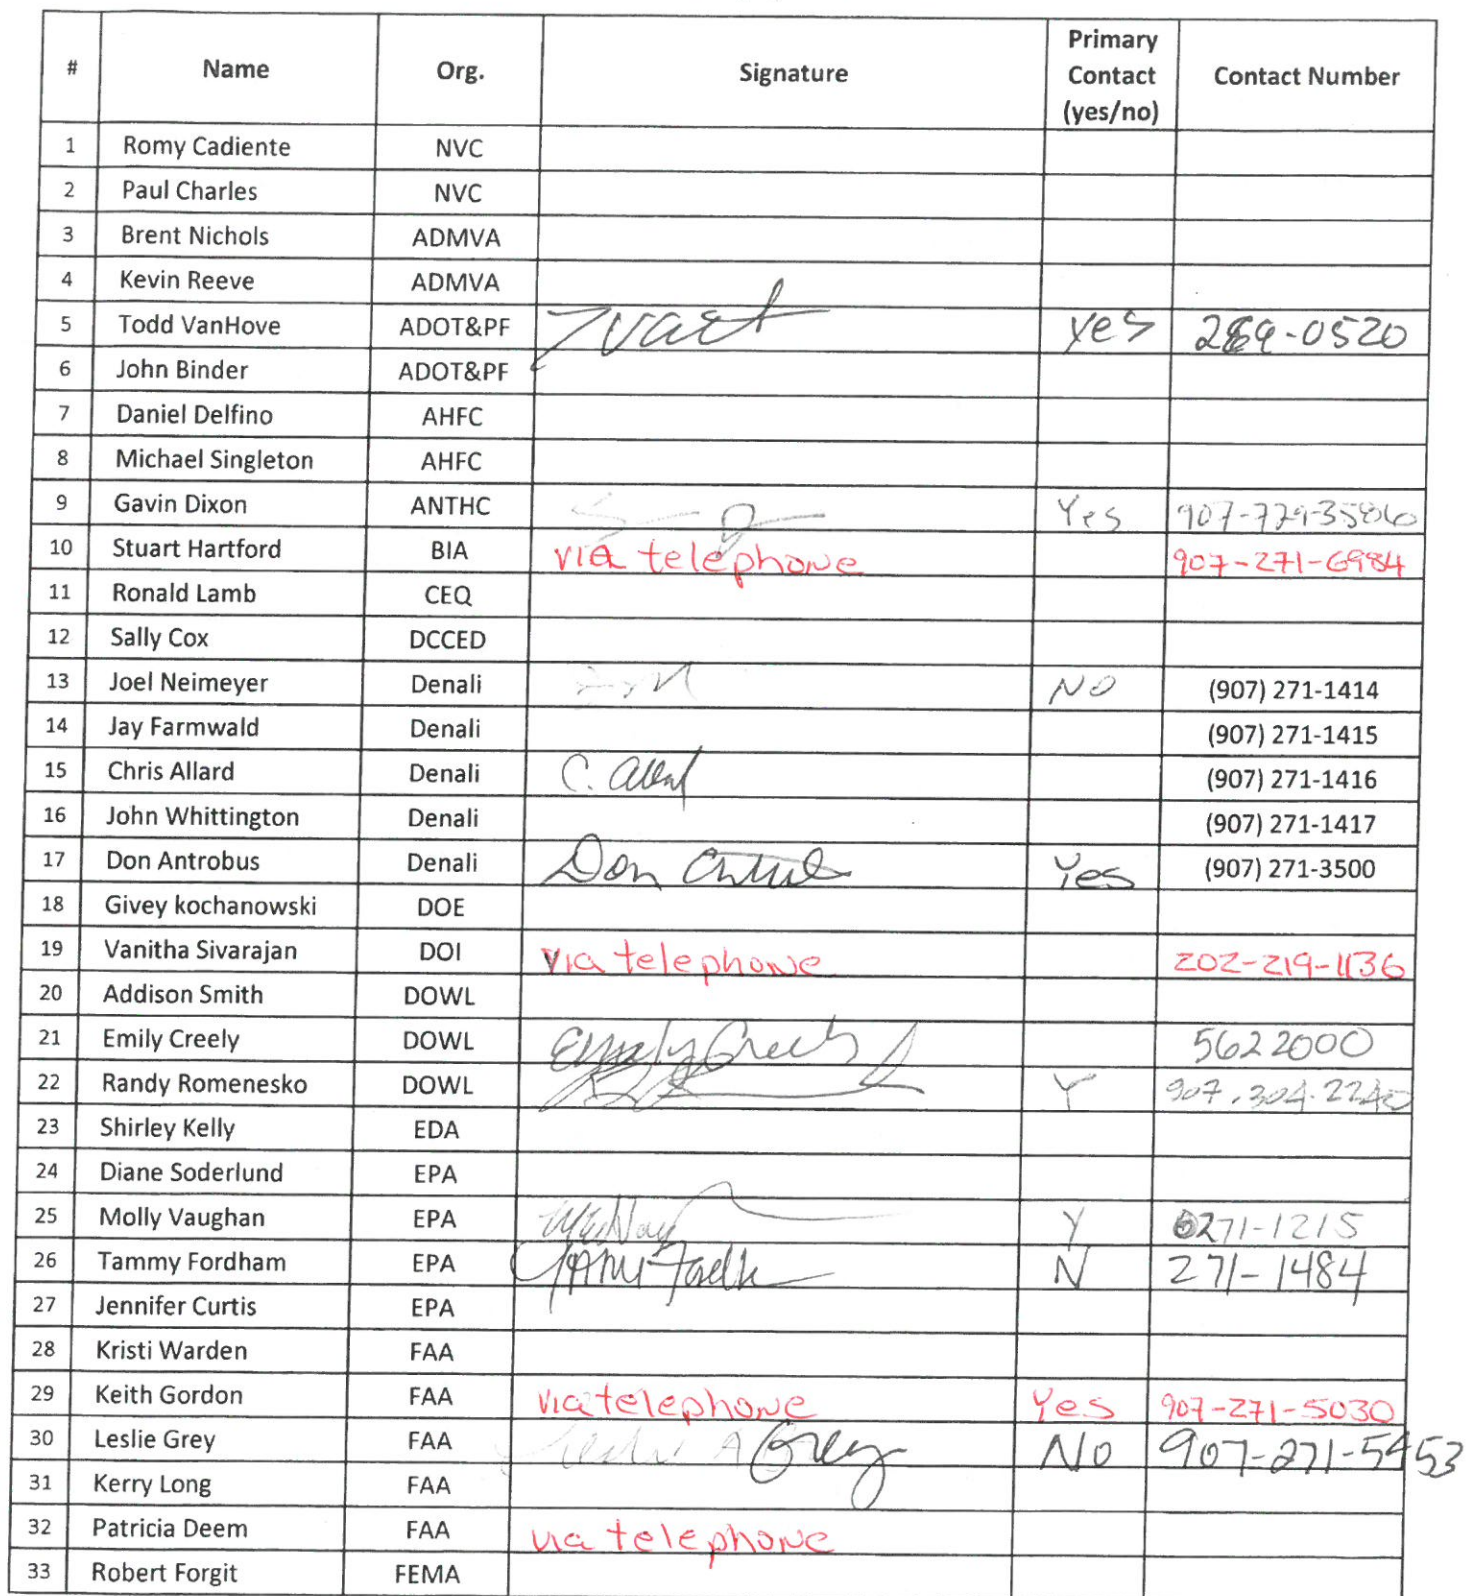 # Name Org. Signature Primary Contact (yes/no) Contact Number
1 Romy Cadiente NVC
2 Paul Charles NVC
3 Brent Nichols ADMVA
4 Kevin Reeve ADMVA
5 Todd VanHove ADOT&PF yes 269-0520
6 John Binder ADOT&PF
7 Daniel Delfino AHFC
8 Michael Singleton AHFC
9 Gavin Dixon ANTHC Yes
10 Stuart Hartford BIA via telephone 907-271-6984
11 Ronald Lamb CEQ
12 Sally Cox DCCED
13 Joel Neimeyer Denali NO (907) 271-1414
14 Jay Farmwald Denali (907) 271-1415
15 Chris Allard Denali C. Allard (907) 271-1416
16 John Whittington Denali (907) 271-1417
17 Don Antrobus Denali Don Yes (907) 271-3500
18 Givey kochanowski DOE
19 Vanitha Sivarajan DOI via telephone 202-219-1136
20 Addison Smith DOWL
21 Emily Creely DOWL Emily Creely 562 2000
22 Randy Romenesko DOWL Y 907.304.2240
23 Shirley Kelly EDA
24 Diane Soderlund EPA
25 Molly Vaughan EPA Y 271-1215
26 Tammy Fordham EPA N 271-1484
27 Jennifer Curtis EPA
28 Kristi Warden FAA
29 Keith Gordon FAA via telephone Yes 907-271-5030
30 Leslie Grey FAA Leslie A Grey No 907-271-5453
31 Kerry Long FAA
32 Patricia Deem FAA via telephone
33 Robert Forgit FEMA